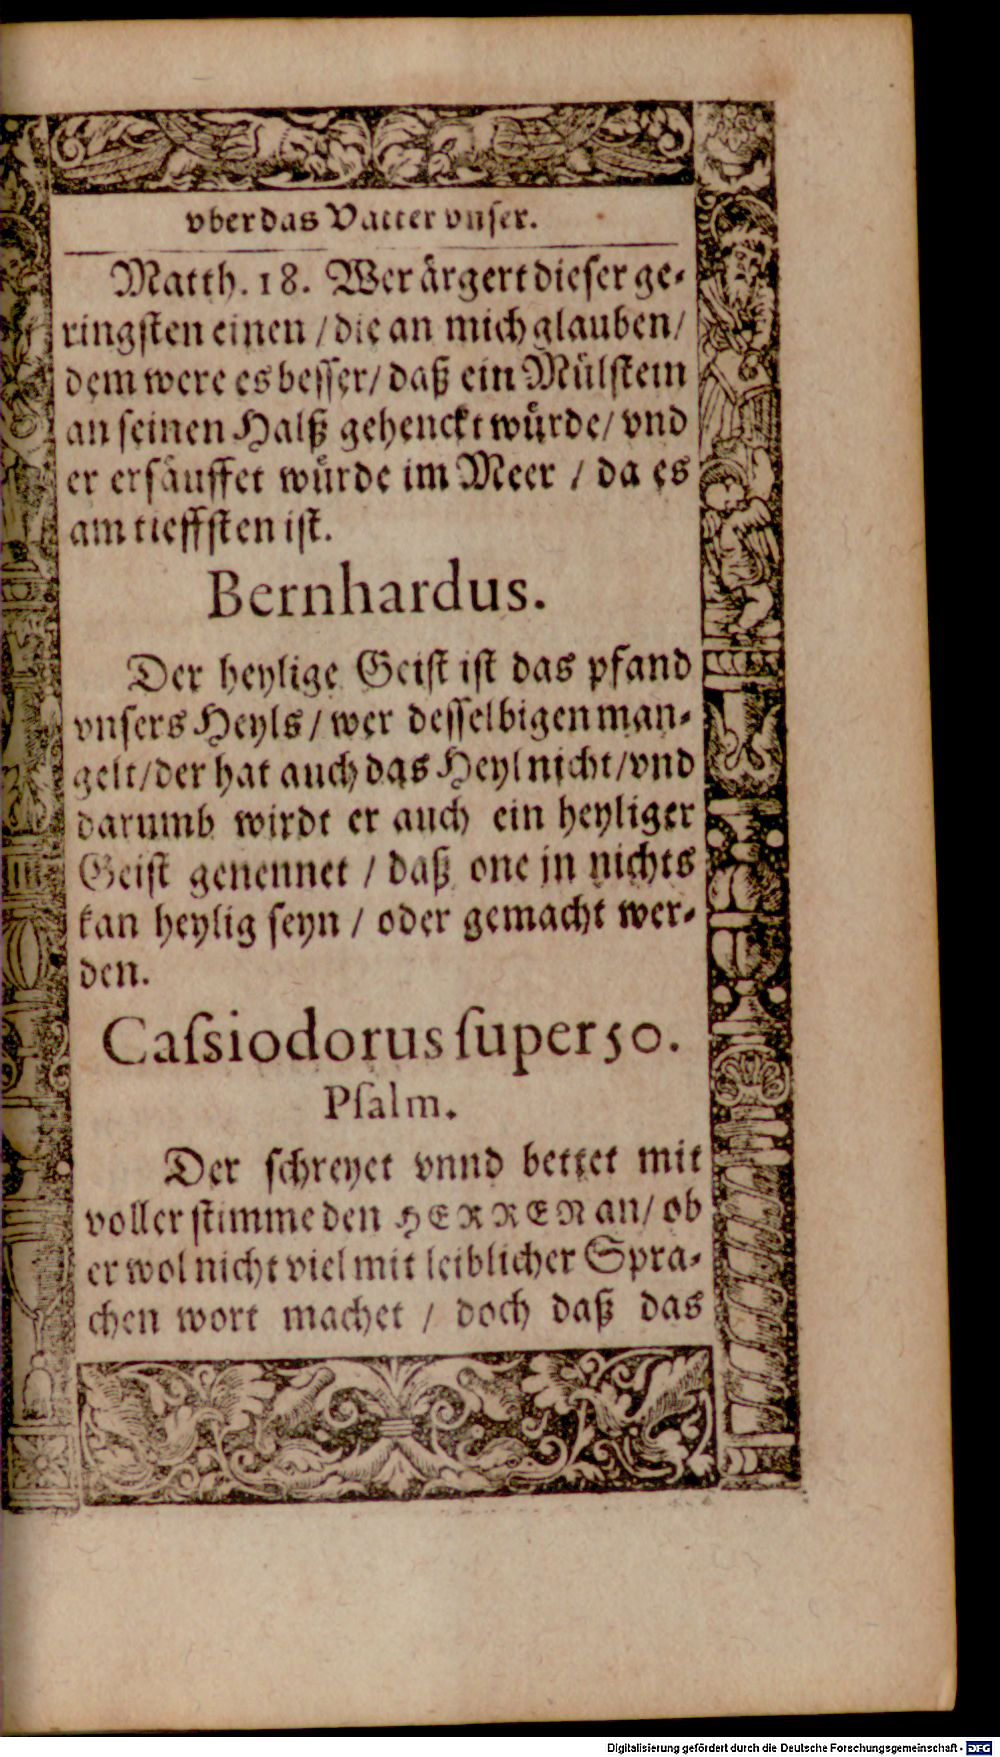 vber das Vatter vnser.
Matth. 18. Wer ärgert dieser ge-
ringsten einen / die an mich glauben/
dem were es besser/ daß ein Mülstein
an seinen Halß gehenckt wůrde/ vnd
er ersäuffet wůrde im Meer / da es
am tieffsten ist.
Bernhardus.
Der heylige Geist ist das pfand
vnsers Heyls / wer desselbigen man-
gelt/der hat auch das Heyl nicht/vnd
darumb wirdt er auch ein heyliger
Geist genennet / daß one jn nichts
kan heylig seyn / oder gemacht wer-
den.
Caſsiodorus ſuper 50.
Pſalm.
Der schreyet vnnd bettet mit
voller stimme den HERREN an/ ob
er wol nicht viel mit leiblicher Spra-
chen wort machet / doch daß das
Digitalisierung gefördert durch die Deutsche Forschungsgemeinschaft - DFG